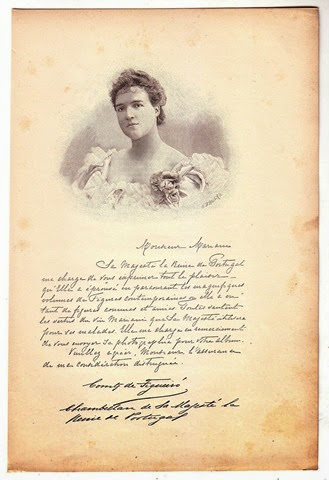 Monsieur Mariani
Sa Majesté la Reine de Portugal
me charge de vous exprimer tout le plaisir
qu'Elle a éprouvé en parcourant les magnifiques
volumes de Figures Contemporaines où elle a vu
tant de figures connues et aimées. Toutes vantent
les vertus du vin Mariani que Sa Majesté utilisera
pour ses malades. Elle me charge en remerciement
de vous envoyer sa photographie pour votre album.
Veuillez agréer, Monsieur l'assurance
de ma considération distinguée.
Comte de
Chambellan de Sa Majesté la
Reine de Portugal